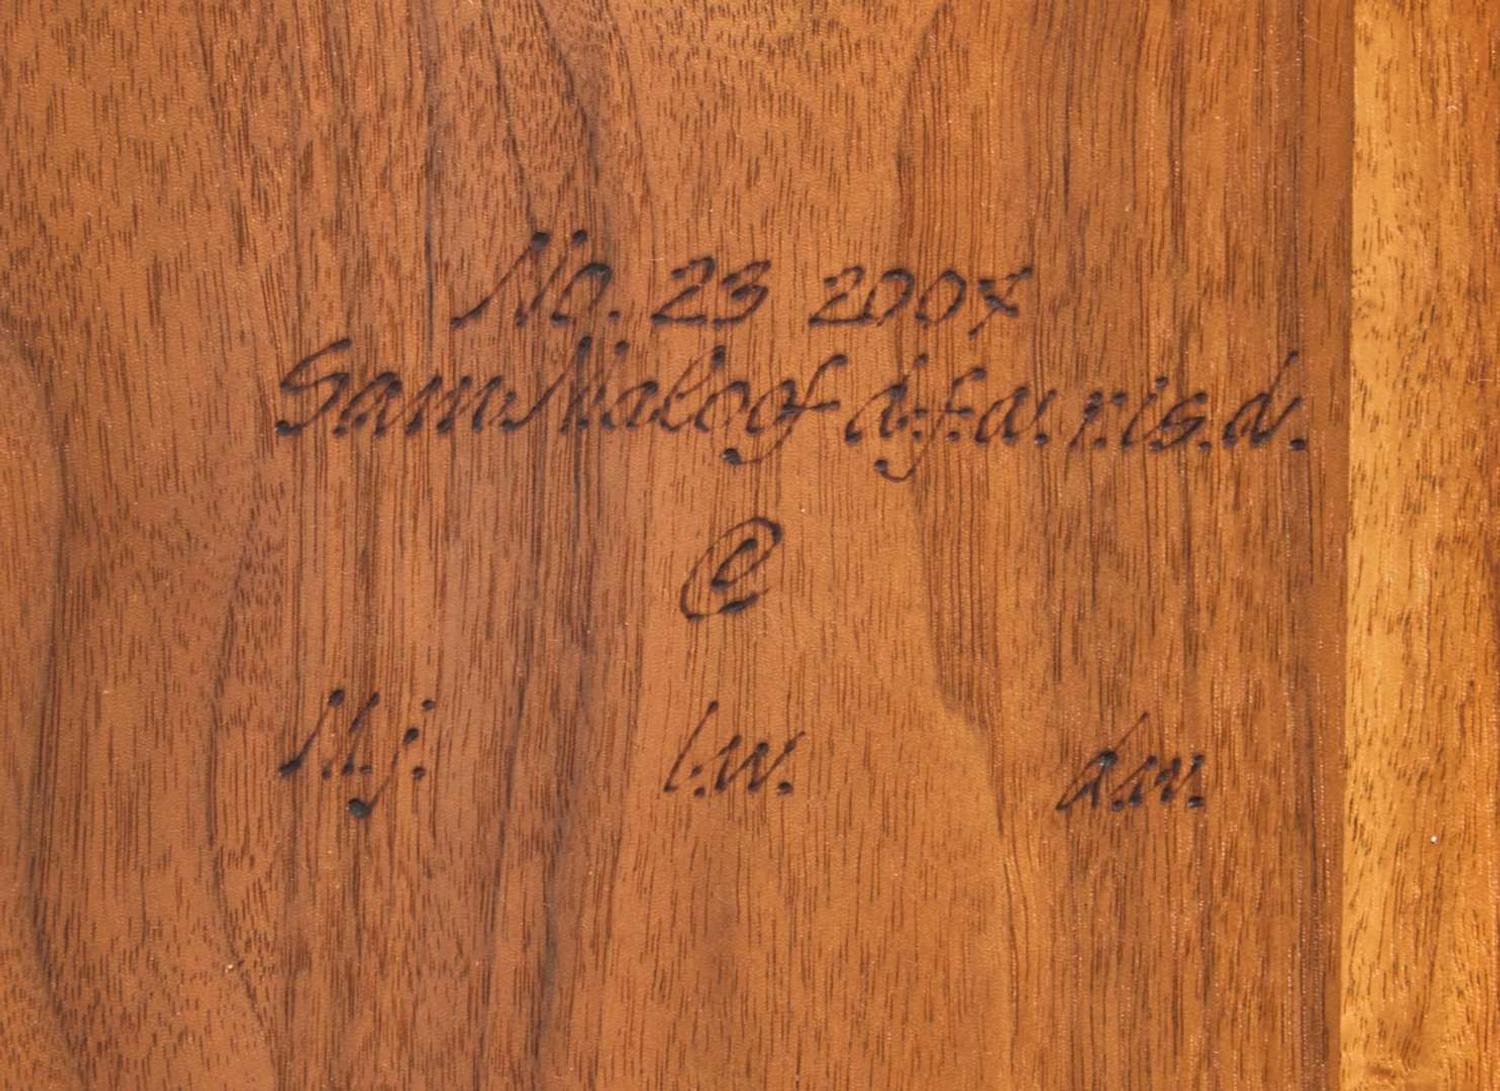 No. 23 2007
Sam Maloof d.f.a. r.i.s.d.
©
M.j. l.w. d.w.